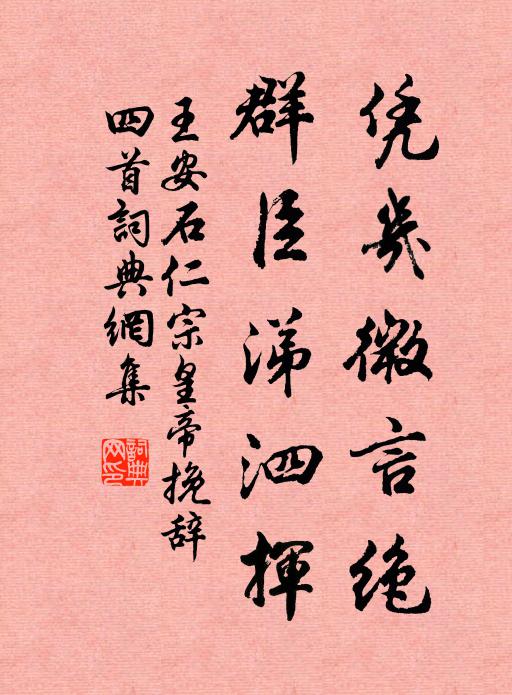 凭几微言绝
群臣涕泗揮
王安石仁宗皇帝挽辞
四首詞典網集
詞典
网印